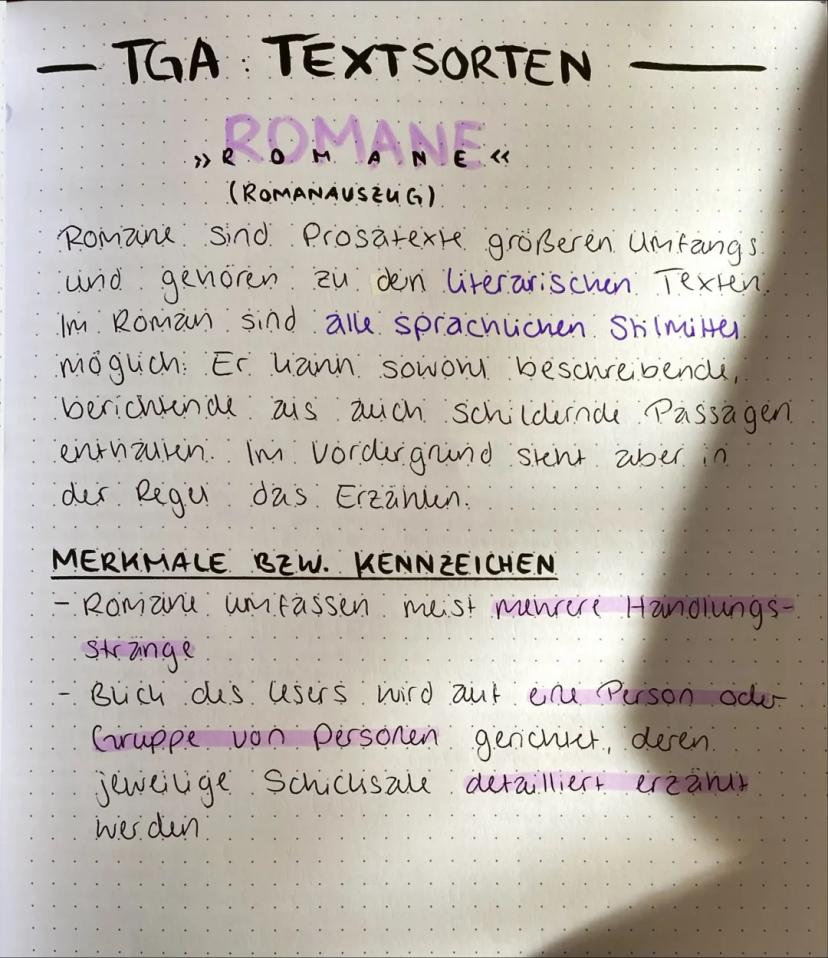 — TGA : TEXTSORTEN —
ROMANE
»ROMANE«
(ROMANAUSZUG)
Romane sind Prosatexte größeren Umfangs
und gehören zu den literarischen Texten.
Im Roman sind alle sprachlichen Stilmittel
möglich. Er kann sowohl beschreibende,
berichtende als auch schildernde Passagen
enthalten. Im Vordergrund steht aber in
der Regel das Erzählen.
MERKMALE BZW. KENNZEICHEN
- Romane umfassen meist mehrere Handlungs-
stränge
- Blick des Lesers wird auf eine Person oder
Gruppe von Personen gerichtet, deren
jeweilige Schicksale detailliert erzählt
werden